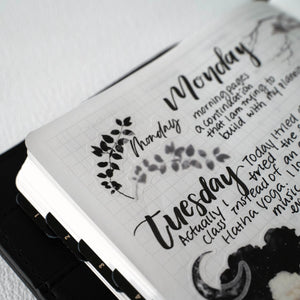 Monday
morning pages
a continuation
that I am trying to
build with my
Monday
Tuesday
Today I tried
Actually I tried the
class instead of an
Hatha Yoga. I
music